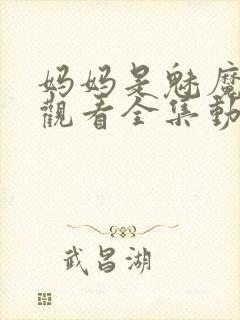 妈妈是魅魔
觀看全集動
武昌湖